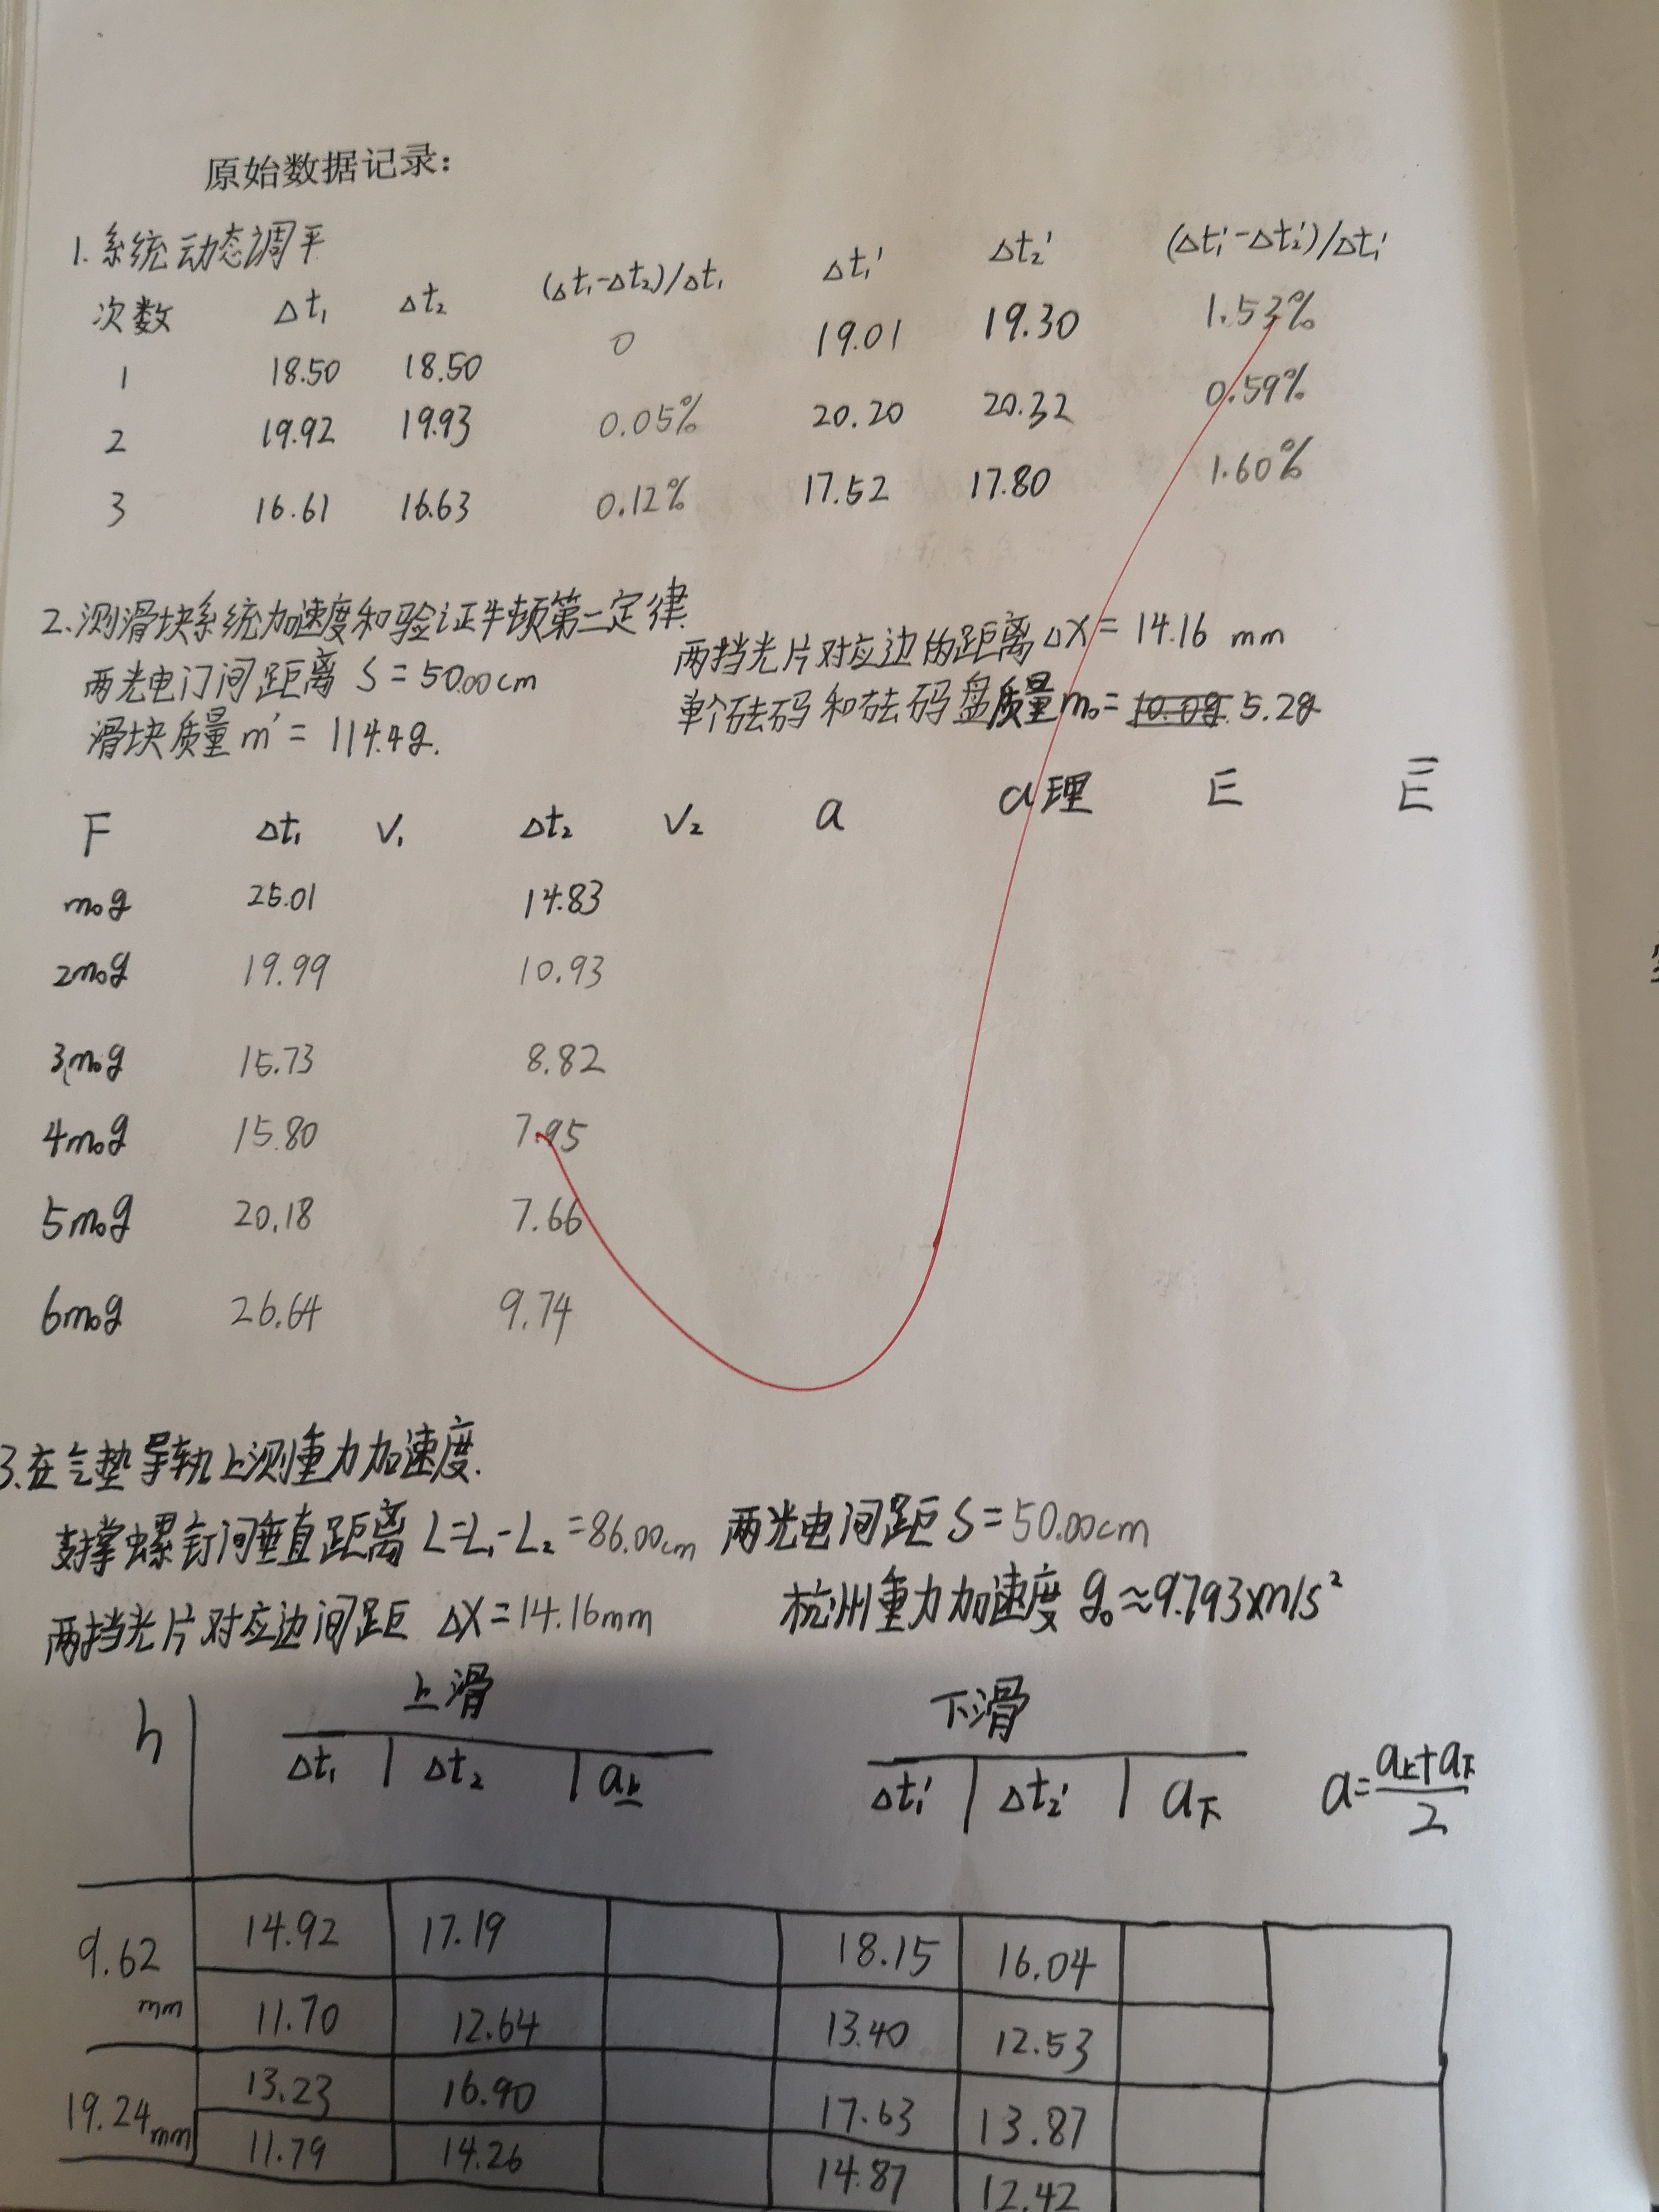 原始数据记录:
1.系统动态调平
次数 Δt₁ Δt₂ (Δt₁-Δt₂)/Δt₁ Δt₁' Δt₂' (Δt₁'-Δt₂')/Δt₁'
1 18.50 18.50 0 19.01 19.30 1.53%
2 19.92 19.93 0.05% 20.20 20.32 0.59%
3 16.61 16.63 0.12% 17.52 17.80 1.60%
2.测滑块系统加速度和验证牛顿第二定律.
两光电门间距离 S=50.00cm 两挡光片对应边的距离ΔX=14.16 mm
滑块质量m'=114.4g. 单个砝码和砝码盘质量m₀=10.0g 5.2g
F Δt₁ V₁ Δt₂ V₂ a a理 E E̿
m₀g 25.01 14.83
2m₀g 19.99 10.93
3m₀g 15.73 8.82
4m₀g 15.80 7.95
5m₀g 20.18 7.66
6m₀g 26.64 9.74
3.在气垫导轨上测重力加速度.
支撑螺钉间垂直距离 L=L₁-L₂=86.00cm 两光电间距S=50.00cm
两挡光片对应边间距 ΔX=14.16mm 杭州重力加速度 g₀≈9.793xm/s²
h 上滑 下滑
Δt₁ Δt₂ a上 Δt₁' Δt₂' a下 a=(a上+a下)/2
9.62 mm 14.92 17.19 18.15 16.04
11.70 12.64 13.40 12.53
19.24mm 13.23 16.90 17.63 13.87
11.79 14.26 14.87 12.42